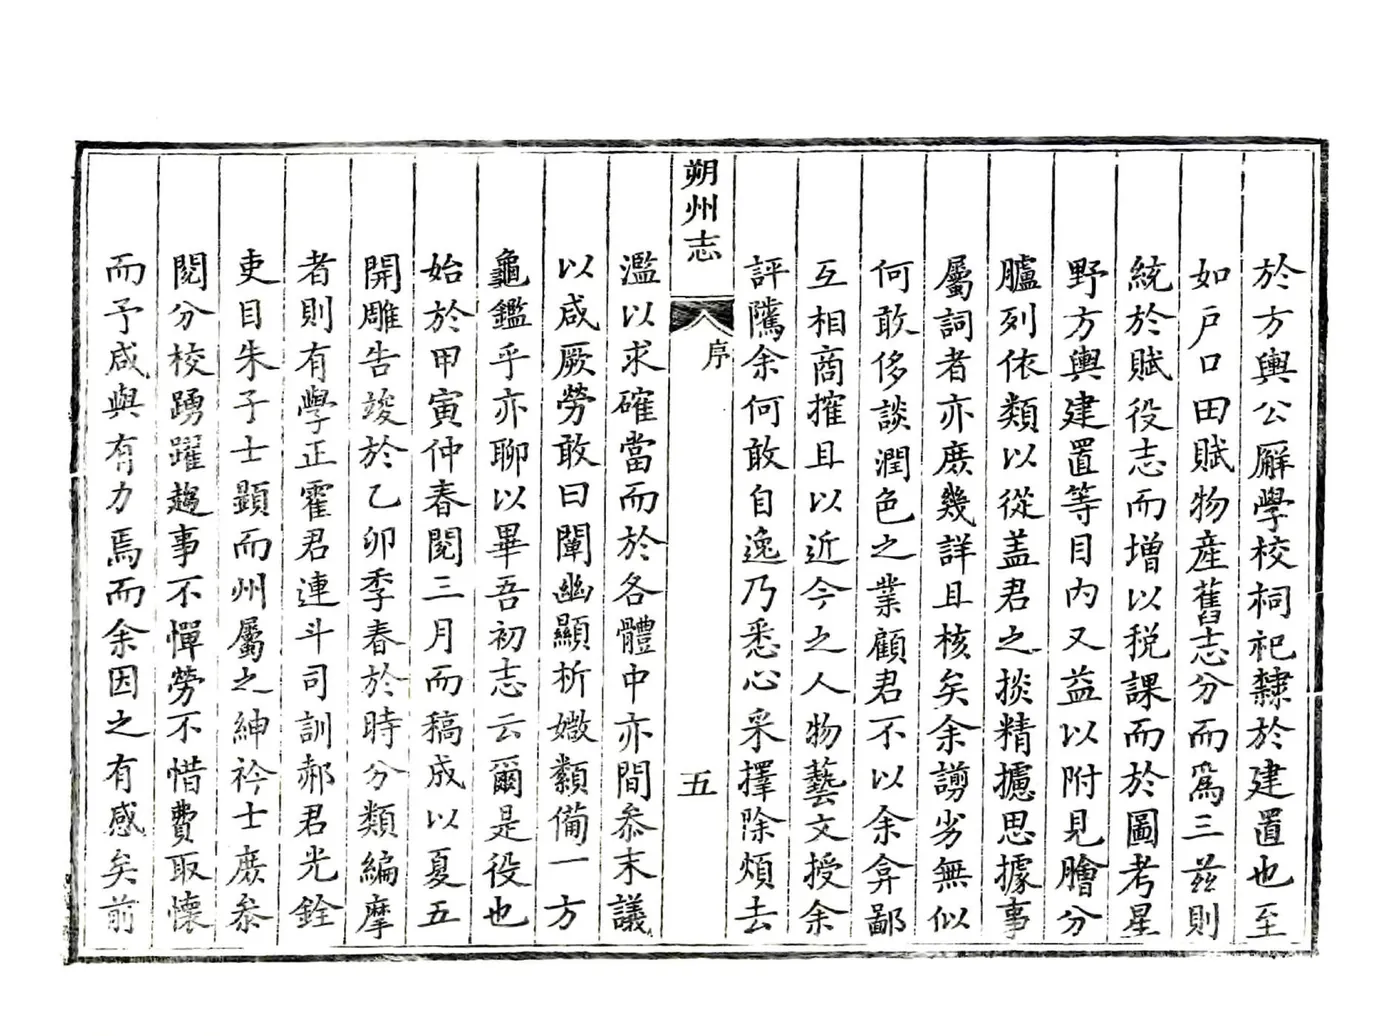 於方輿公廨學校祠祀隸於建置也至
如戸口田賦物產舊志分而爲三茲則
統於賦役志而增以税課而於圖考星
野方輿建置等目内又益以附見膾分
臚列依類以從盖君之掞精攄思據事
屬詞者亦庶幾詳且核矣余謭劣無似
何敢侈談潤色之業顧君不以余弇鄙
互相商搉且以近今之人物藝文授余
評隲余何敢自逸乃悉心采擇除煩去
朔州志
序
五
濫以求確當而於各體中亦間叅末議
以咸厥勞敢曰闡幽顯析媺纇備一方
龜鑑乎亦聊以畢吾初志云爾是役也
始於甲寅仲春閱三月而稿成以夏五
開雕告竣於乙卯季春於時分類編摩
者則有學正霍君連斗司訓郝君光銓
吏目朱子士顕而州屬之紳衿士庶叅
閱分校踴躍趨事不憚勞不惜費取懷
而予咸與有力焉而余因之有感矣前